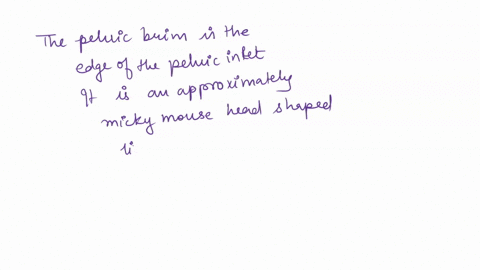 The pelvic brim is the
edge of the pelvic inlet
It is an approximately
micky mouse head shaped
li